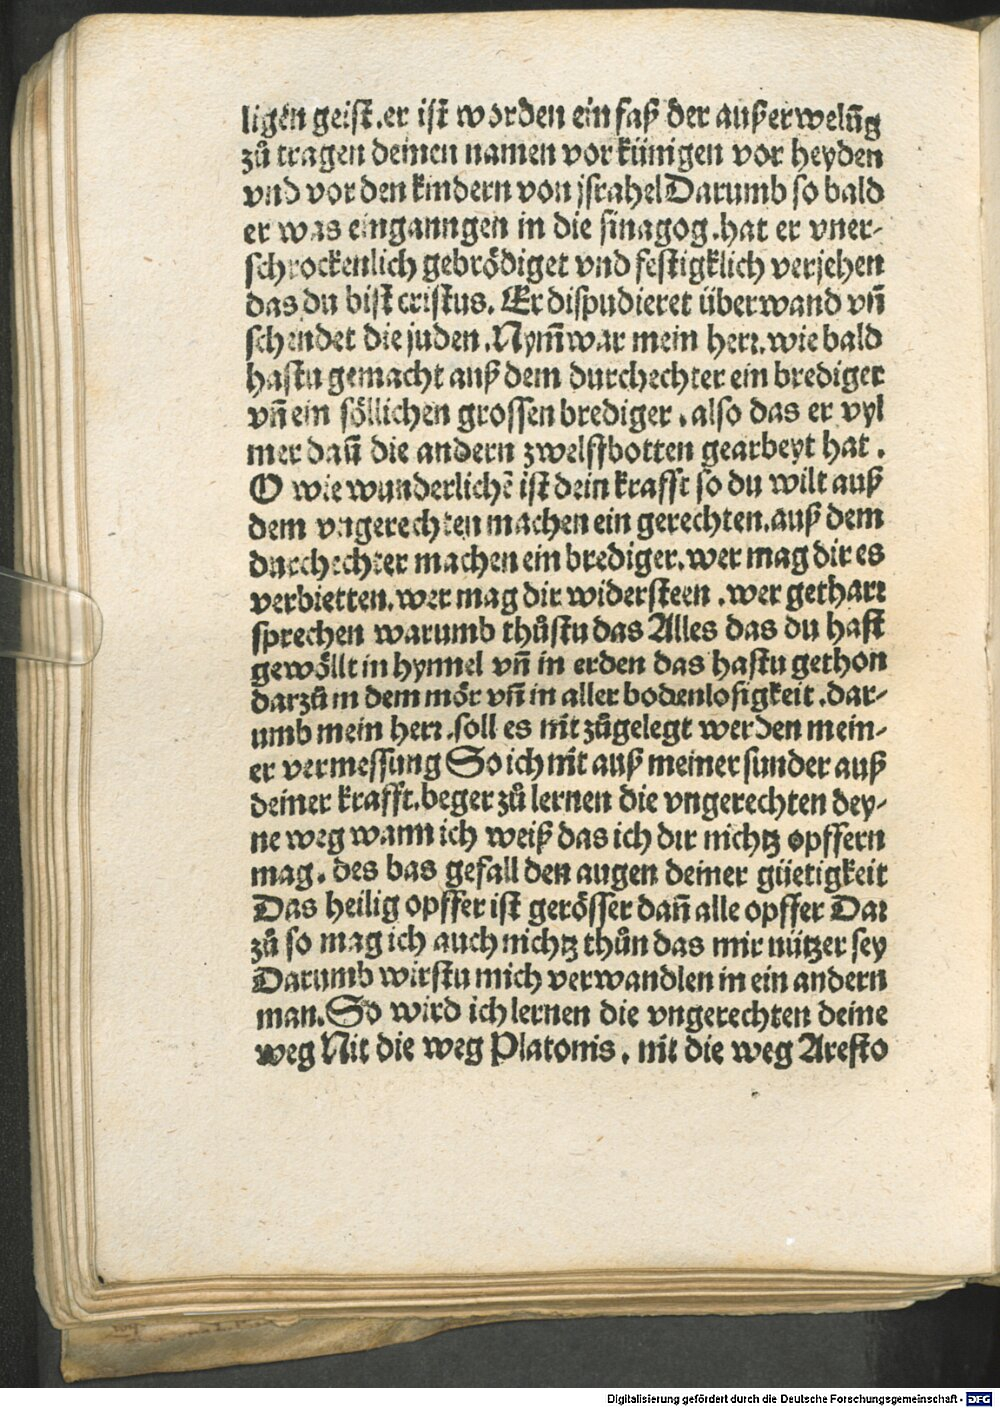 ligen geist.er ist worden ein faß der außerwelūg
zů tragen deinen namen vor künigen vor heyden
vnd vor den kindern von jsrahel Darumb so bald
er was einganngen in die sinagog.hat er vner-
schrockenlich gebrödiget vnd festigklich verjehen
das du bist cristus. Er dispudieret überwand vn̄
schendet die juden. Nym̄war mein herr.wie bald
hastu gemacht auß dem durchechter ein brediger
vn̄ ein söllichen grossen brediger. also das er vyl
mer dan̄ die andern zwelffbotten gearbeyt hat.
O wie wunderlichē ist dein krafft so du wilt auß
dem vngerechten machen ein gerechten.auß dem
durchechter machen ein brediger.wer mag dir es
verbietten.wer mag dir widersteen .wer getharr
sprechen warumb thůstu das Alles das du hast
gewöllt in hymel vn̄ in erden das hastu gethon
darzů in dem mör vn̄ in aller bodenlosigkeit.dar-
umb mein herr.soll es nit zůgelegt werden mein-
er vermessung So ich nit auß meiner sunder auß
deiner krafft.beger zů lernen die vngerechten dey-
ne weg wann ich weiß das ich dir nichtz opffern
mag. des bas gefall den augen deiner güetigkeit
Das heilig opffer ist gerösser dan̄ alle opffer Dar
zů so mag ich auch nichtz thůn das mir nützer sey
Darumb wirstu mich verwandlen in ein andern
man. So wird ich lernen die vngerechten deine
weg Nit die weg Platonis. nit die weg Aresto
Digitalisierung gefördert durch die Deutsche Forschungsgemeinschaft - DFG